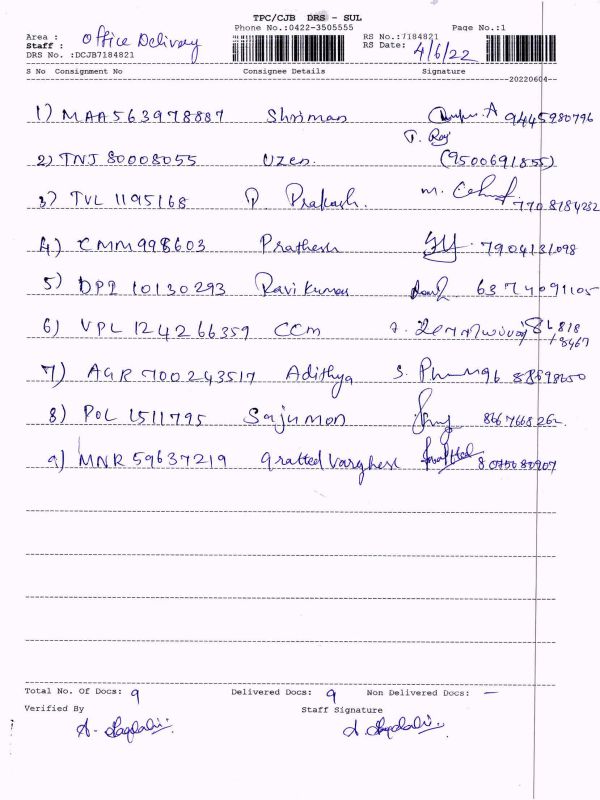 TPC/CJB DRS - SUL
Phone No.:0422-3505555 Page No.:1
Area : Office Delivery RS No.:7184821
Staff : RS Date: 4/6/22
DRS No. :DCJB7184821
S No Consignment No Consignee Details Signature
20220604
1) MAA563978887 Shriman A 9445980796
2) TNJ 80008055 Uzen. (9500691855)
3) TVL 1195168 P. Prakash. 7708184232
4) CMM998603 Prathesh 7904131098
5) DPI 10130293 Ravi Kumar 6374091105
6) VPL 124266359 CCM
7) AGR 700243517 Adithya S.
8) POL 1511795 Sajumon 8667668262.
9) MNR 59637219 Varghese 8075680907
Total No. Of Docs: 9 Delivered Docs: 9 Non Delivered Docs: —
Verified By Staff Signature